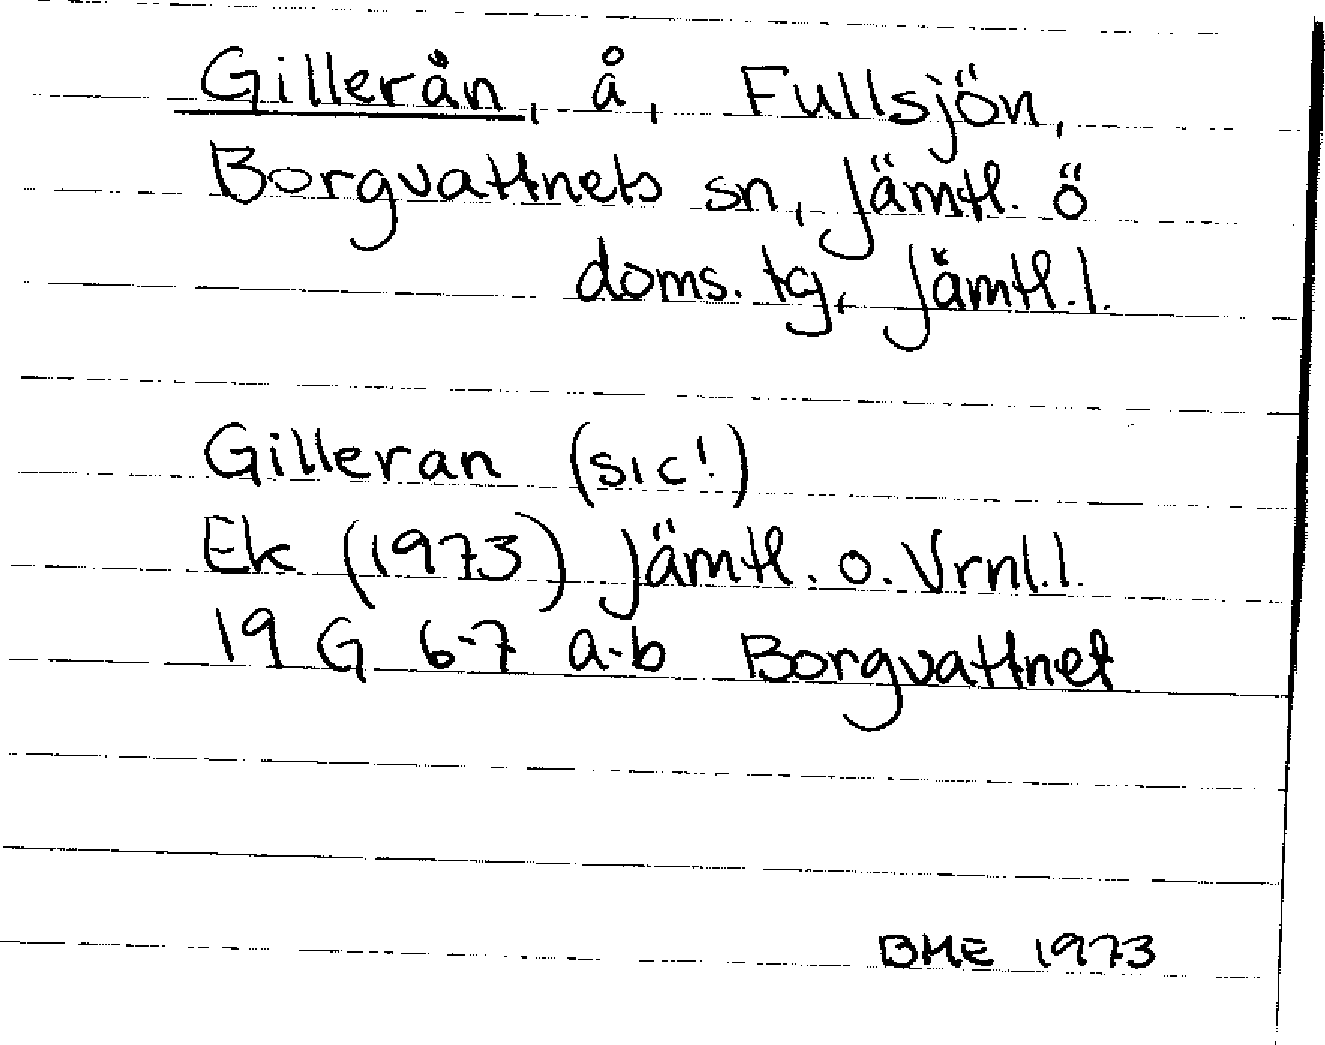 Gillerån, å, Fullsjön,
Borgvattnets sn, Jämtl. ö
doms. tg, Jämtl.l.
Gilleran (sic!)
Ek (1973) Jämtl. o. Vrnl.l.
19 G 6-7 a-b Borgvattnet
BME 1973